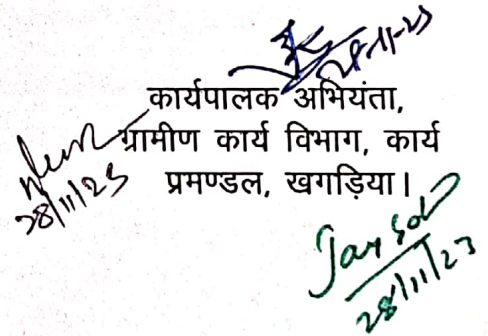 28-11-23
कार्यपालक अभियंता,
ग्रामीण कार्य विभाग, कार्य
प्रमण्डल, खगड़िया।
28/11/23
28/11/23